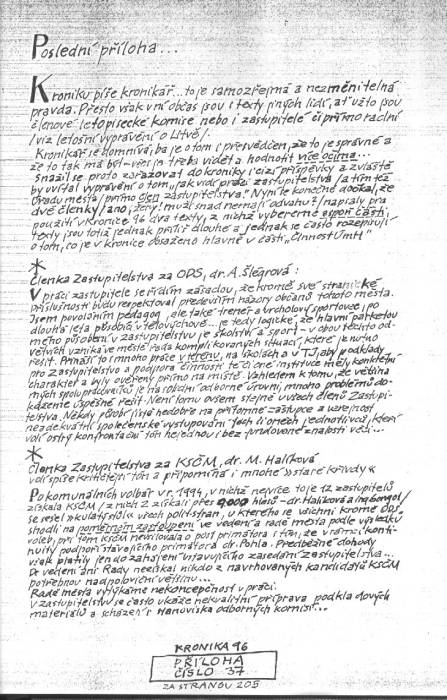 Poslední příloha...
Kroniku píše kronikář... to je samozřejmá a nezměnitelná
pravda. Přesto však v ní občas jsou i texty jiných lidí, ať už to jsou
členové letopisecké komise nebo i zastupitelé či přímo radní
/viz letošní vyprávění o Litvě/.
Kronikář se domnívá, ba je o tom i přesvědčen, že to je správné a
že to tak má být - věci je třeba vidět a hodnotit více očima...
Snažil se proto zařazovat do kroniky i cizí příspěvky a zvláště
by uvítal vyprávění o tom, jak vidí práci zastupitelstva /a tím též
Úřadu města/ přímo člen zastupitelstva. Nyní se konečně dočkal, že
dvě členky /ano, ženy! muži snad nemají odvahu?/ napsaly pra
použití v Kronice 96 dva texty, z nichž vybereme aspoň části,
texty jsou totiž jednak příliš dlouhé a jednak se často rozepisují
o tom, co je v kronice obsaženo hlavně v části „Činnost ÚmH"
*
Členka Zastupitelstva za ODS, dr. A. Šlégrová:
V práci zastupitele se řídím zásadou, že kromě své stranické
příslušnosti budu respektoval především názory občanů tohoto města.
Jsem povoláním pedagog, ale také trenér a vrcholový sportovec, po
dlouhá léta působila v tělovýchově... je tedy logické, že hlavní parketou
mého působení v zastupitelstvu je školství a sport - v obou těchto od-
větvích vzniká ve městě řada komplikovaných situací, které je nutno
řešit. Přináší to i mnoho práce v terénu, na školách a v TJ, aby podklady
pro Zastupitelstvo a podpora činnosti té či oné instituce měly konkrétní
charakter a byly ověřeny přímo na místě. Vzhledem k tomu, že většina
mých spolupracovníků je na solidní odborné úrovni, mnoho problémů do-
kážeme úspěšně řešit. Není tomu ovšem stejně u všech členů Zastupi-
telstva. Někdy působí jistě nedobře na přítomné zástupce a veřejnost
neadekvátní společenské vystupování těch či oněch jednotlivců, kteří
volí ostrý konfrontační tón nejednou i bez fundované znalosti věci...
*
Členka Zastupitelstva za KSČM, dr. M. Halíková
volí spíše kritičtější tón a připomíná i mnohé »staré křivdy«
Po komunálních volbách v r. 1994, v nichž nejvíce to je 12 zastupitelů
získala KSČM /z nich 2 získali přes 9000 hlasů - dr. Halíková a ing. Gongol/
se sešel »kulatý stůl« všech politstran, u kterého se všichni kromě ODS
shodli na poměrném zastoupení ve vedení a radě města podle výsledků
voleb, při tom KSČM neusilovala o post primátora s tím, že v rámci konti-
nuity podpoří stávajícího primátora dr. Pohla. Předběžné dohody
však platily jen do zahájení ustavujícího zasedání Zastupitelstva...
Do vedení ani Rady nezískal nikdo z navrhovaných kandidátů KSČM
potřebnou nadpoloviční většinu...
Radě města vytýkáme nekoncepčnost v práci.
V zastupitelstvu se často ukáže nekvalitní příprava podkladových
materiálů a scházejí stanoviska odborných komisí...
KRONIKA 96
PŘÍLOHA
ČÍSLO 37
ZA STRANOU 205